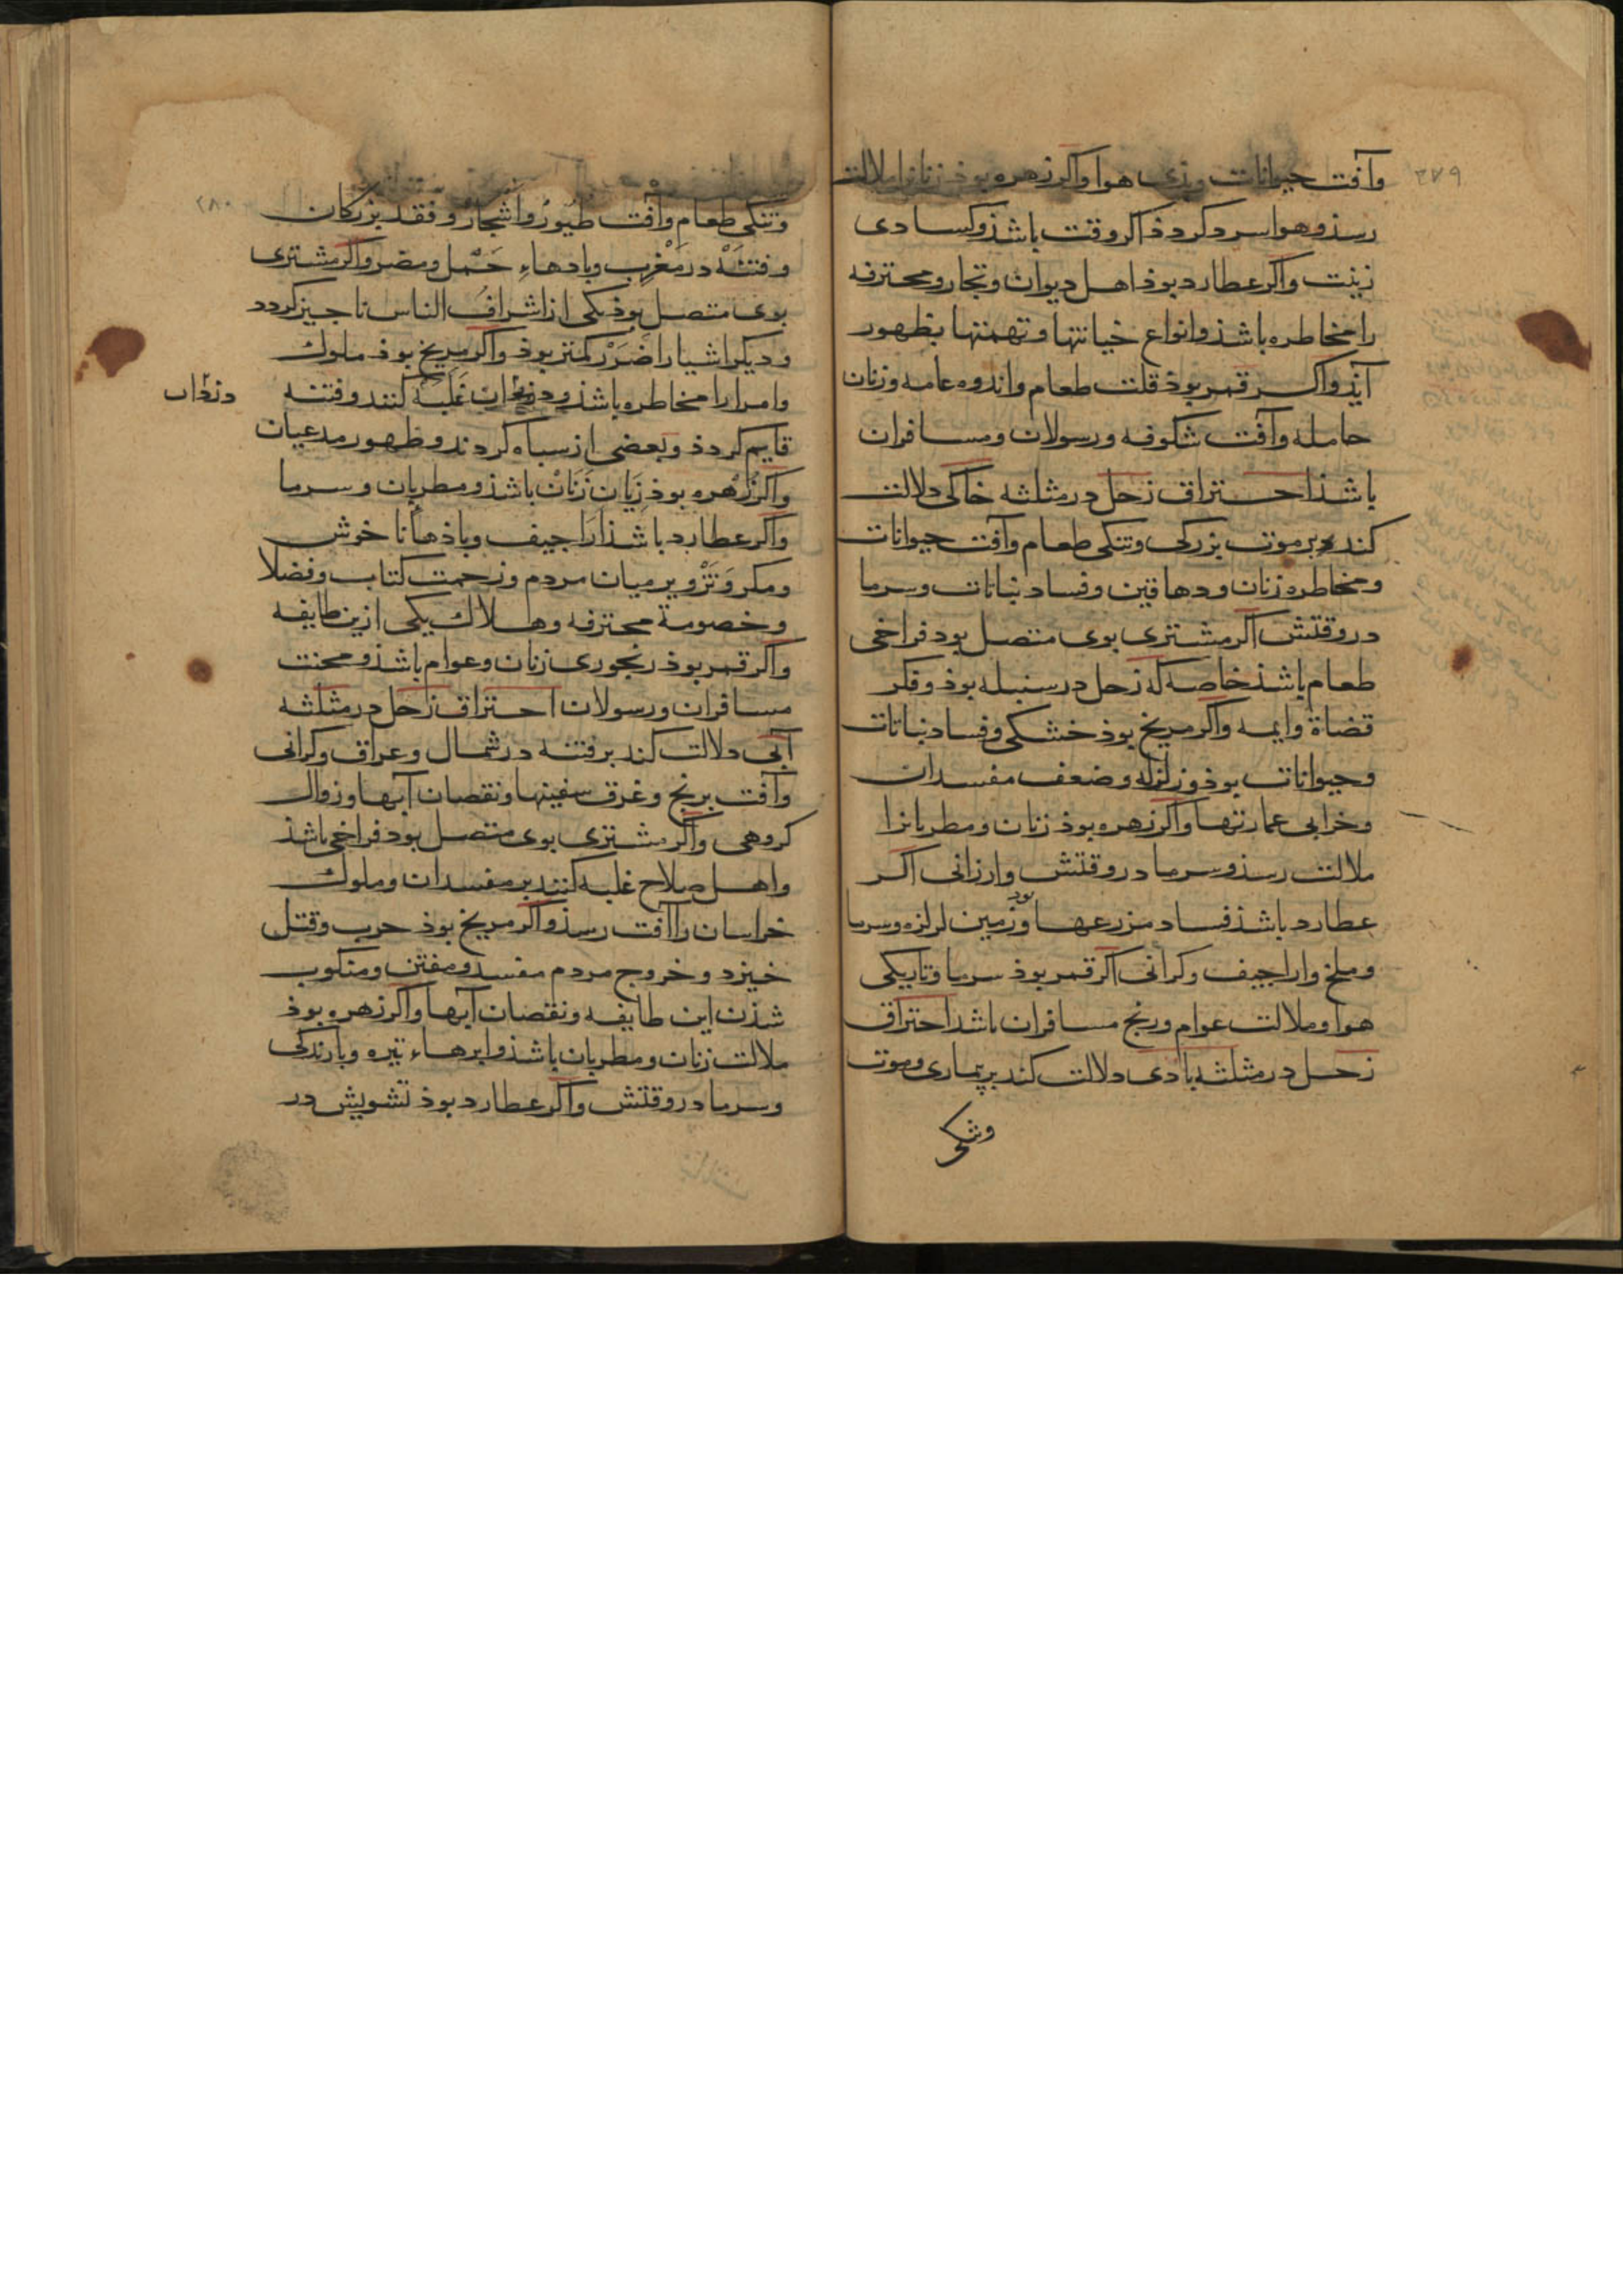 ۲۷۹
وآفت حیوانات وبدی هوا واکر زهره بوذ زنانرا ملالت
رسذ وهوا سرد کردذ اکر وقت باشذ وکسادی
زینت واکر عطارد بوذ اهل دیوان وتجار ومحترفه
را مخاطره باشذ وانواع خیانتها وتهمتها بظهور
آیذ واکر قمر بوذ قلت طعام واندوه عامه وزنان
حامله وآفت شکوفه ورسولان ومسافران
باشذ احتراق زحل در مثلثه خاکی دلالت
کند بر موت بزرکی وتنکی طعام وآفت حیوانات
ومخاطره زنان ودهاقین وفساد نباتات وسرما
در وقتش اکر مشتری بوی متصل بود فراخی
طعام باشذ خاصه که زحل در سنبله بوذ وفکر
قضاة وایمه واکر مریخ بوذ خشکی وفساد نباتات
وحیوانات بوذ وزلزله وضعف مفسدان
وخرابی عمارتها واکر زهره بوذ زنان ومطربانرا
ملالت رسذ وسرما در وقتش وارزانی اکر
عطارد باشذ فساد مزرعها بود وزمین لرزه وسرما
وملخ واراجیف وکرانی اکر قمر بوذ سرما وتاریکی
هوا وملالت عوام ورنج مسافران باشد احتراق
زحل در مثلثه بادی دلالت کند بر بیماری وموت
وتنکی
۲۸۰
وتنکی طعام وآفت طیور واشجار وفقد بزرکان
وفتنه در مغرب وبادهاء حمل ومضر واکر مشتری
بوی متصل بوذ یکی از اشراف الناس ناجیز کردد
ودیکر اشیا را ضرر کمتر بوذ واکر مریخ بوذ ملوک
وامرا را مخاطره باشذ ودزدان غلبه کنند وفتنه
دزدان
قایم کردذ وبعضی از سباه کردند وظهور مدعیان
واکر زهره بوذ زیان زنان باشذ ومطربان وسرما
واکر عطارد باشذ اراجیف وباذها نا خوش
ومکر وتزویر میان مردم وزحمت کتاب وفضلا
وخصومة محترفه وهلاک یکی ازین طایفه
واکر قمر بوذ رنجوری زنان وعوام باشذ ومحنت
مسافران ورسولان احتراق زحل در مثلثه
آبی دلالت کند بر فتنه در شمال وعراق وکرانی
وآفت برنج وغرق سفینها ونقصان آبها وزوال
کروهی واکر مشتری بوی متصل بود فراخی باشذ
واهل صلاح غلبه کنند بر مفسدان وملوک
خراسان را آفت رسذ واکر مریخ بوذ حرب وقتل
خیزد وخروج مردم مفسد ومفتن ومنکوب
شذن این طایفه ونقصان آبها واکر زهره بوذ
ملالت زنان ومطربان باشذ وابرهاء تیره وبارندکی
وسرما در وقتش واکر عطارد بوذ تشویش در